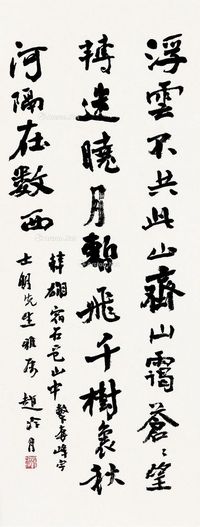 浮雲不共此山齊山靄蒼〻望
轉迷曉月暫飛千樹裏秋
河隔在數西
韓翃宿石邑山中 奪峰字
士明先生雅属 趙冷月